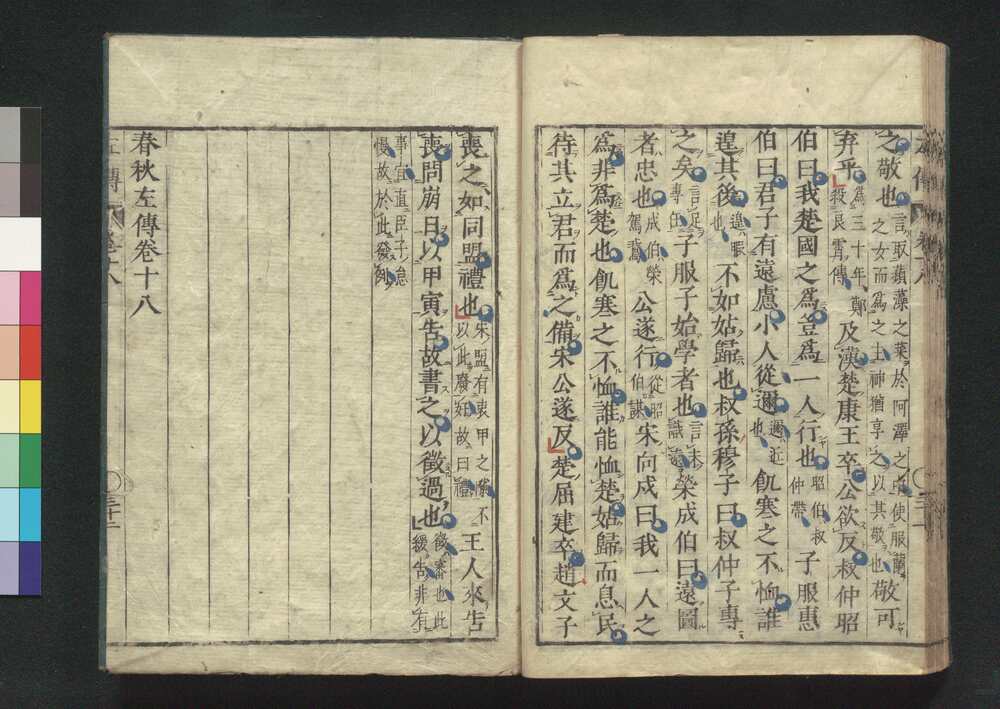 之敬也言取蘋藻之菜於阿澤之中使服蘭之女而爲之主神猶享之以其敬也敬可
弃乎爲三十年鄭殺良霄傳及漢楚康王卒公欲反叔仲昭
伯曰我楚國之爲豈爲一人行也昭伯叔仲帶子服惠
伯曰君子有遠慮小人從邇邇近也飢寒之不恤誰
遑其後遑暇也不如姑歸也叔孫穆子曰叔仲子專
之矣言足專任子服子始學者也言未識遠榮成伯曰遠圖
者忠也成伯榮駕鵞公遂行從昭伯謀宋向戌曰我一人之
爲非爲楚也飢寒之不恤誰能恤楚姑歸而息民
待其立君而爲之備宋公遂反楚屈建卒趙文子
喪之如同盟禮也宋盟有衷甲之隙不以此廢好故曰禮王人來告
喪問崩日以甲寅告故書之以徵過也徵審也此緩告非有
事宜直臣子怠慢故於此發例
春秋左傳卷十八